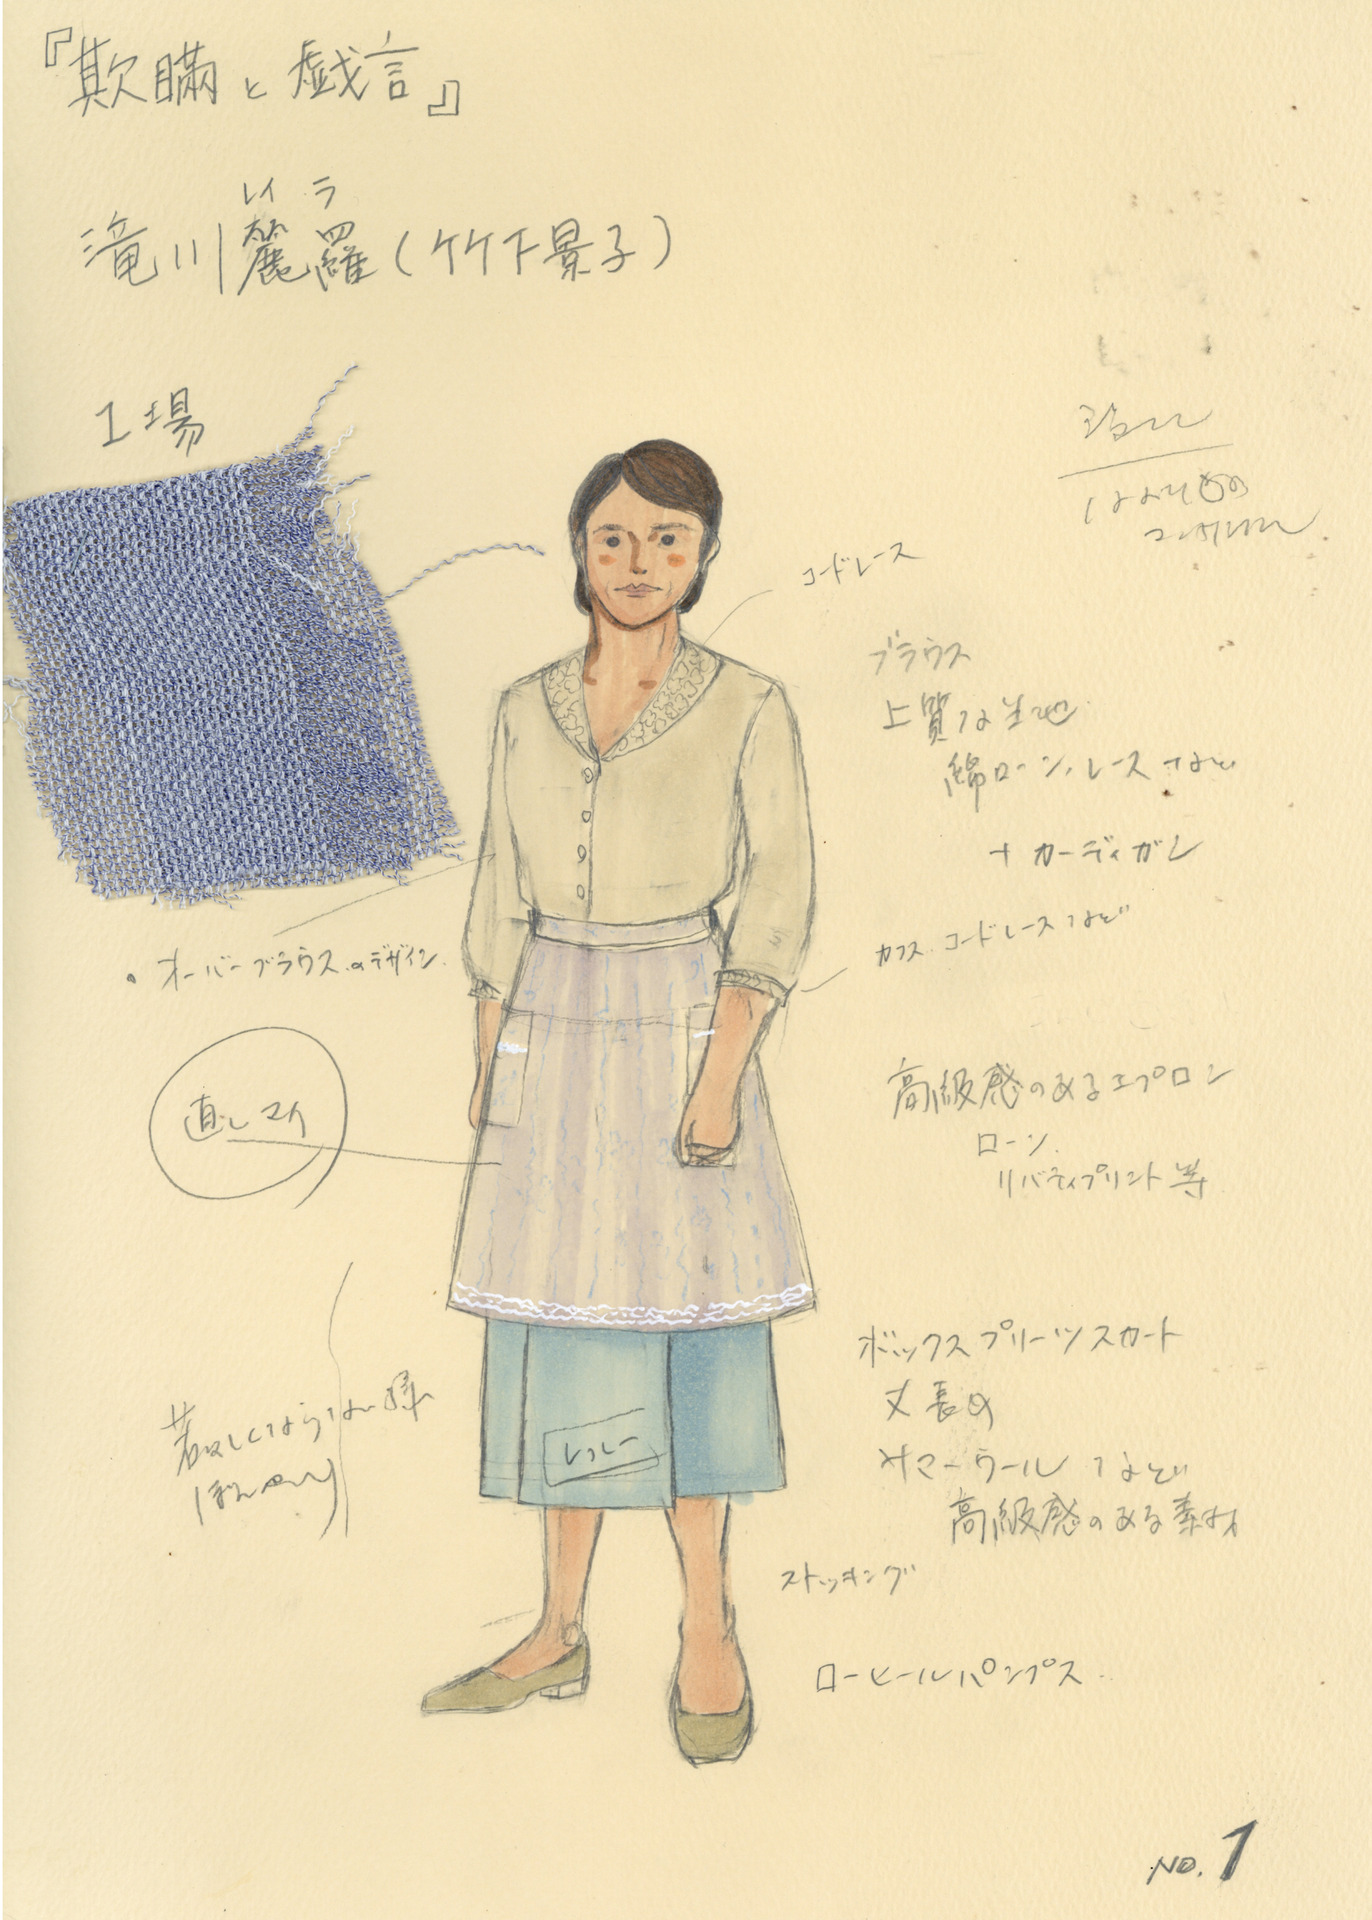 『欺瞞と戯言』
レイ ラ
滝川麗羅(竹下景子)
1場
コードレース
ブラウス
上質な生地
綿ローン、レースなど
+カーディガン
カフス、コードレースなど
・オーバーブラウスのデザイン
高級感のあるエプロン
ローン
リバティプリント等
ボックスプリーツスカート
丈長め
サマーウールなど
高級感のある素材
ストッキング
ローヒールパンプス
NO. 1